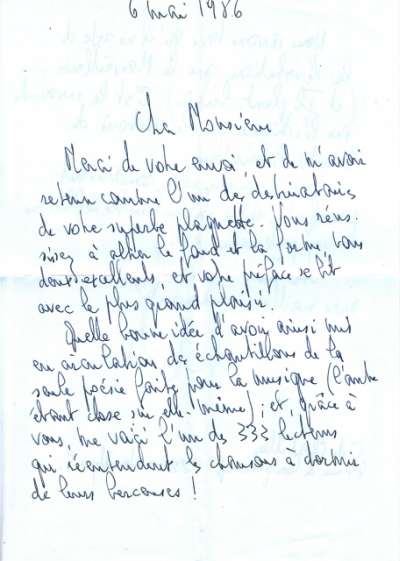 6 mai 1986
Cher Monsieur
Merci de votre envoi, et de m'avoir
retenu comme l'un des destinataires
de votre superbe plaquette. Vous réus-
sissez à allier le fond et la forme, tous
deux excellents, et votre préface se lit
avec le plus grand plaisir.
Quelle bonne idée d'avoir ainsi mis
en circulation des échantillons de la
seule poésie faite pour la musique (l'autre
étant close sur elle-même) ; et, grâce à
vous, me voici l'un des 333 lecteurs
qui réentendent les chansons à dormir
de leurs berceuses !